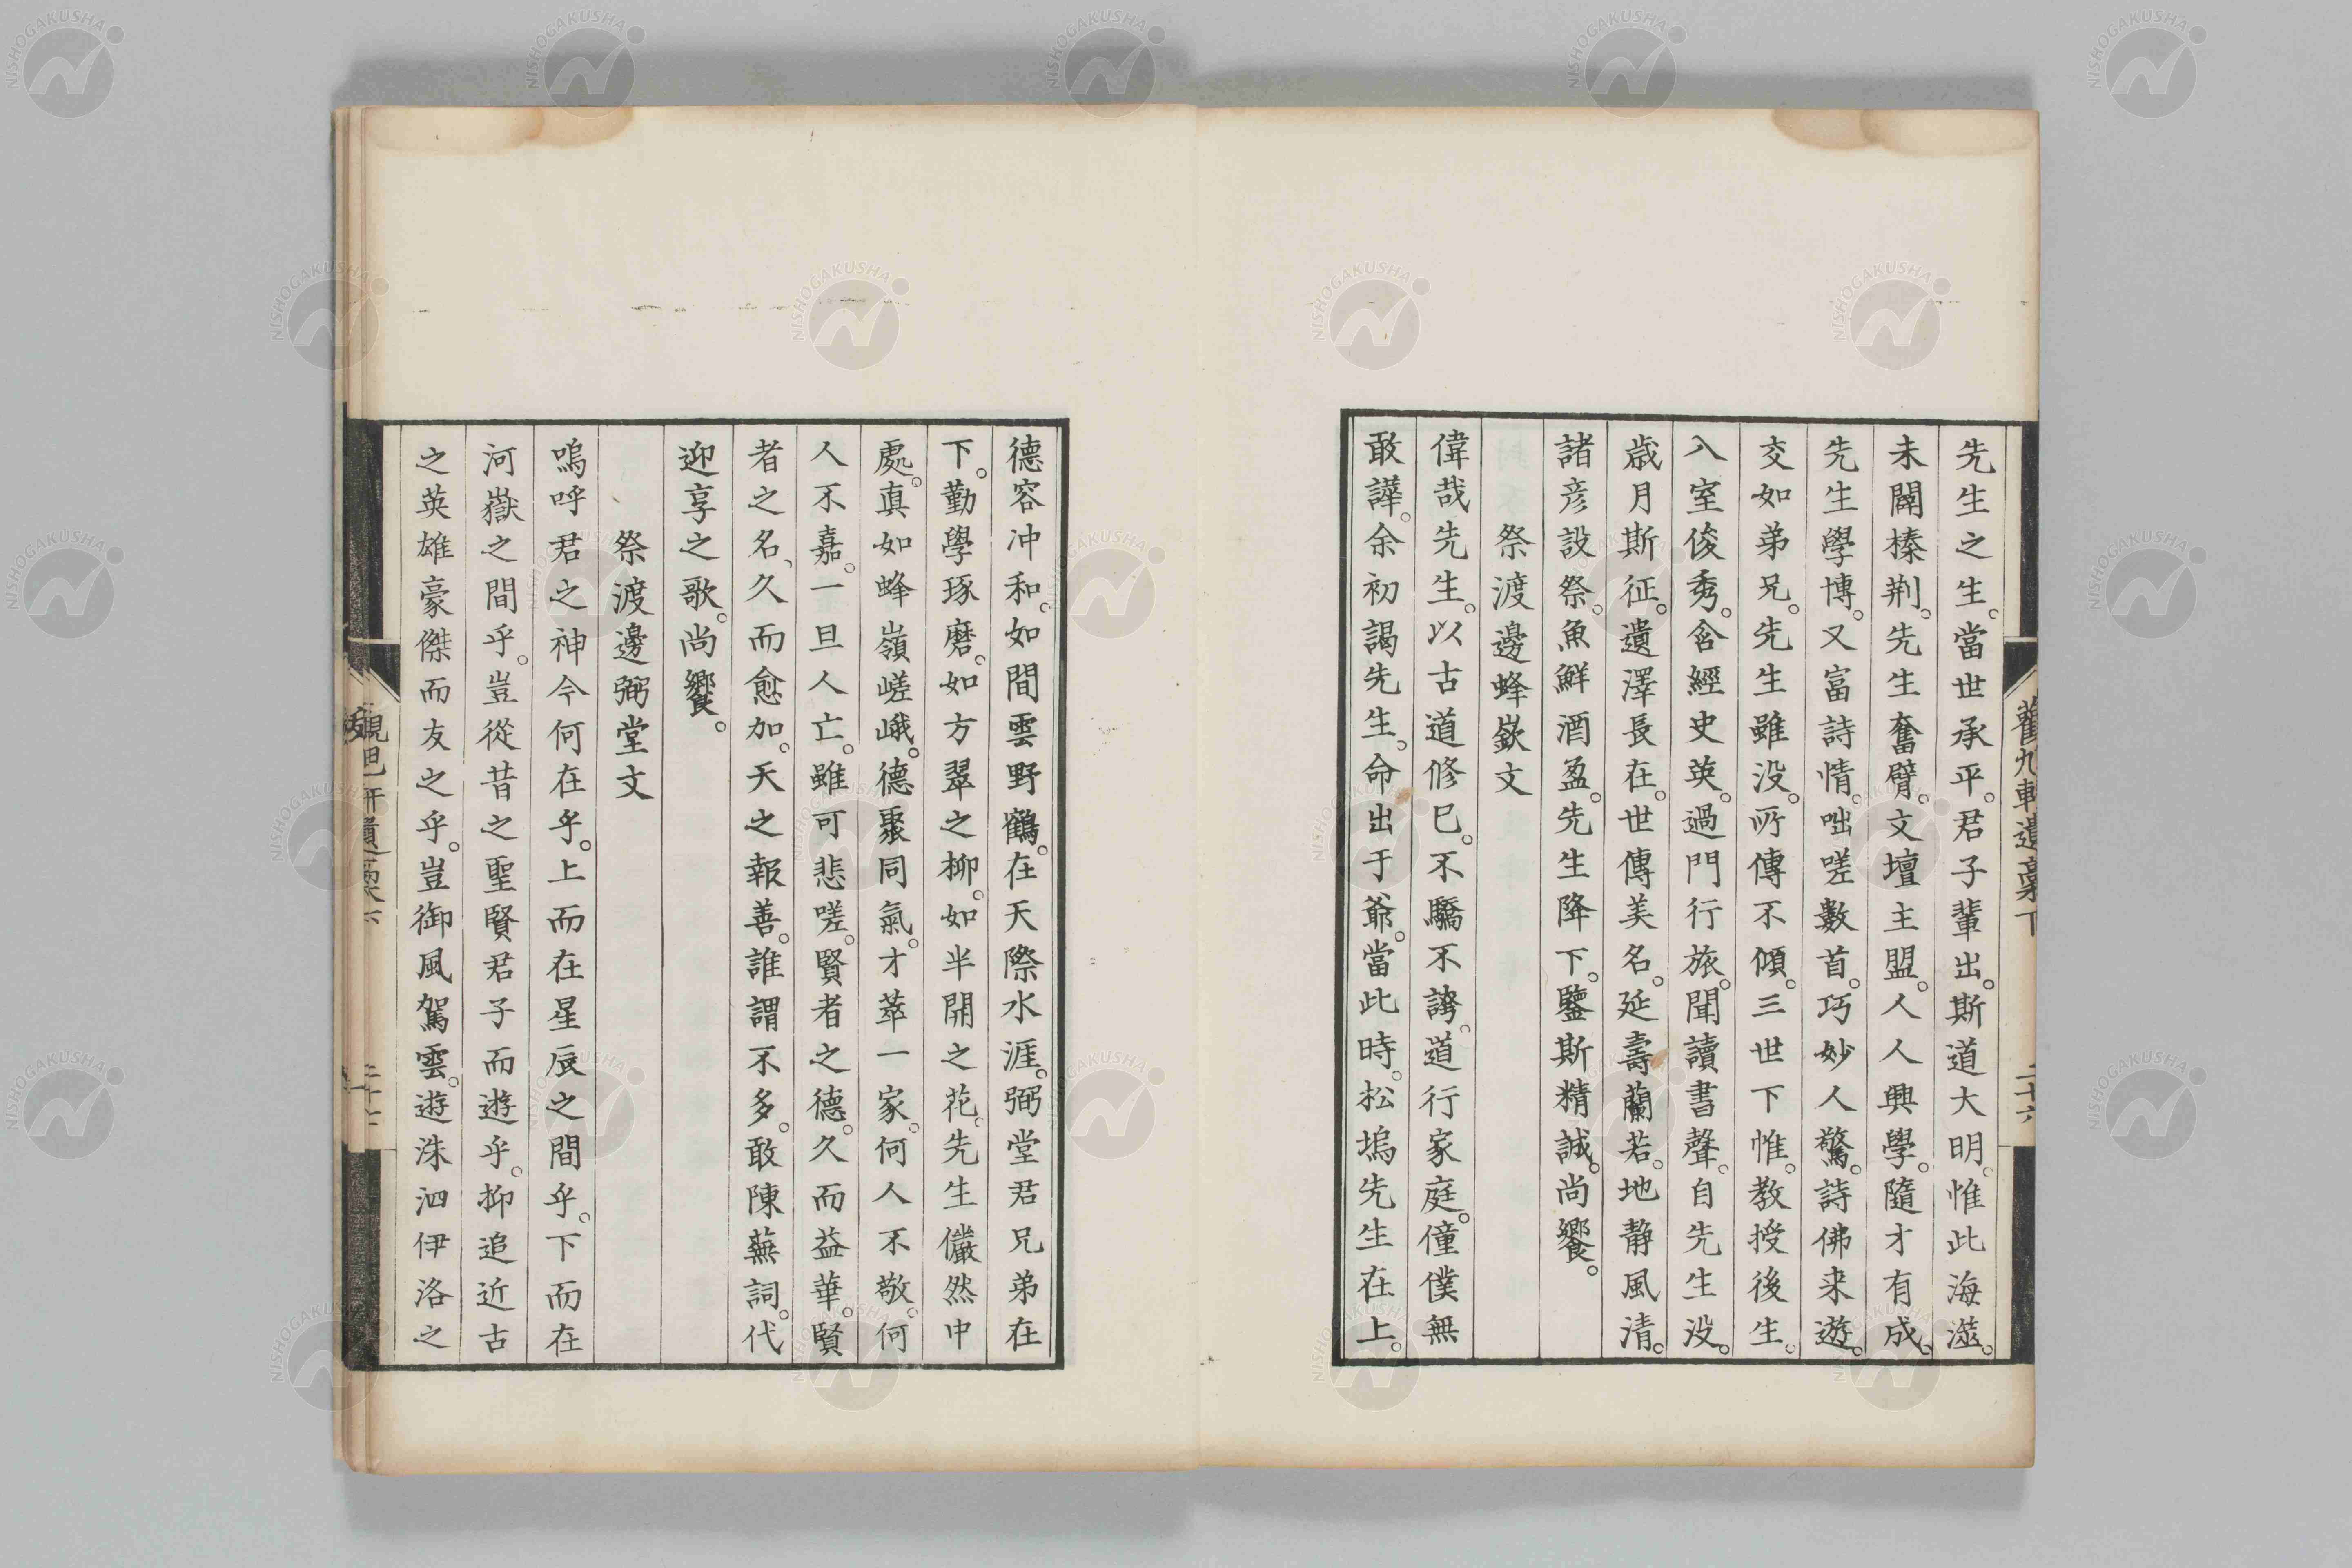 先生之生。當世承平。君子輩出。斯道大明。惟此海澨。
未闢榛荆。先生奮臂。文壇主盟。人人興學。隨才有成。
先生學博。又富詩情。咄嗟數首。巧妙人驚。詩佛来遊。
交如弟兄。先生雖没。所傳不傾。三世下惟。教授後生。
入室俊秀。含經史英。過門行旅。聞讀書聲。自先生没。
歳月斯征。遺澤長在。世傳美名。延壽蘭若。地静風清。
諸彦設祭。魚鮮酒盈。先生降下。鑒斯精誠。尚饗。
祭渡邊蜂欽文
偉哉先生。以古道修已。不驕不誇。道行家庭。僮僕無
敢譁。余初謁先生。命出于爺。當此時。松塢先生在上。
德容冲和。如間雲野鶴。在天際水涯。弼堂君兄弟在
下。勤學琢磨。如方翠之柳。如半開之花。先生儼然中
處。真如蜂嶺嵯峨。德聚同氣。才萃一家。何人不敬。何
人不嘉。一旦人亡。雖可悲嗟。賢者之德。久而益華。賢
者之名、久而愈加。天之報善。誰謂不多。敢陳蕪詞。代
迎享之歌。尚饗。
祭渡邊弼堂文
嗚呼君之神今何在乎。上而在星辰之間乎。下而在
河嶽之間乎。豈從昔之聖賢君子而遊乎。抑追近古
之英雄豪傑而友之乎。豈御風駕雲。遊洙泗伊洛之